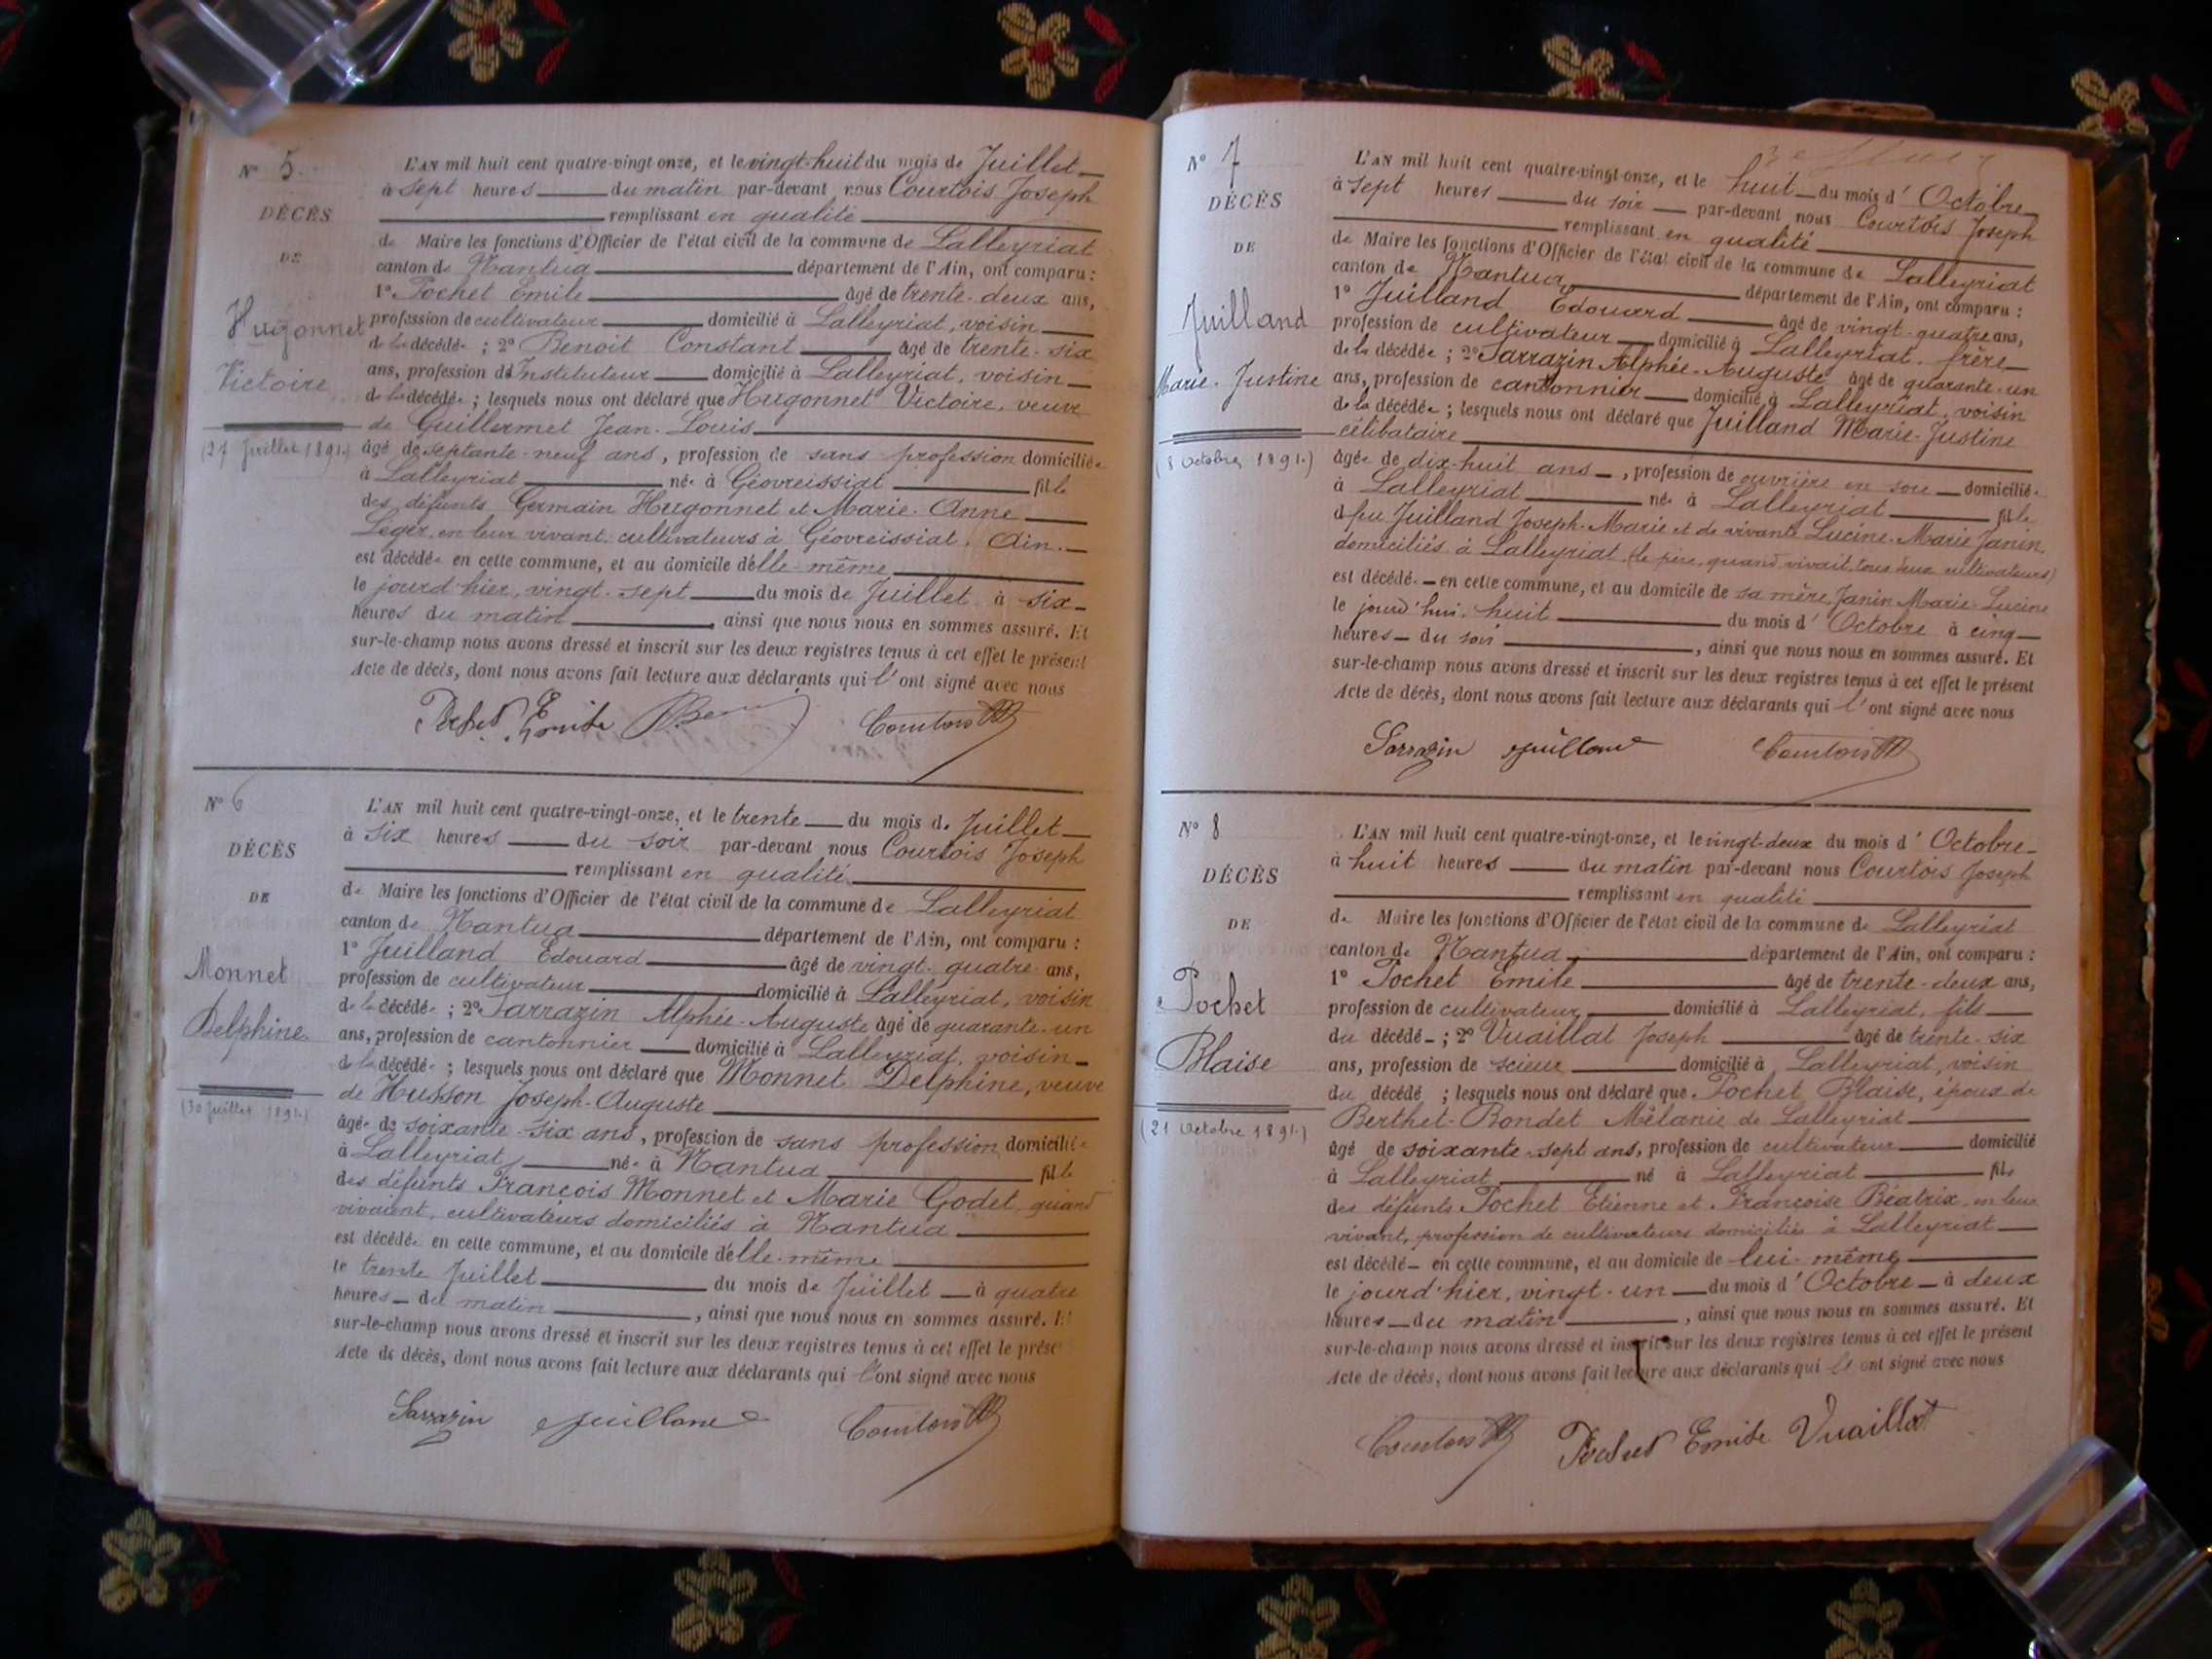 N° 5.
DÉCÈS
DE
Hugonnet
Victoire
(27 Juillet 1891.)
L'AN mil huit cent quatre-vingt-onze, et le vingt-huit du mois de Juillet
à sept heures du matin par-devant nous Courtois Joseph
remplissant en qualité
de Maire les fonctions d'Officier de l'état civil de la commune de Lalleyriat
canton de Nantua département de l'Ain, ont comparu :
1° Pochet Emile âgé de trente-deux ans,
profession de cultivateur domicilié à Lalleyriat, voisin
de la décédée ; 2° Benoit Constant âgé de trente-six
ans, profession d'Instituteur domicilié à Lalleyriat, voisin
de la décédée ; lesquels nous ont déclaré que Hugonnet Victoire, veuve
de Guillermet Jean-Louis
âgé de septante-neuf ans, profession de sans profession domiciliée
à Lalleyriat née à Géovreissiat fille
des défunts Germain Hugonnet et Marie-Anne
Léger, en leur vivant cultivateurs à Géovreissiat, Ain.
est décédée en cette commune, et au domicile d'elle-même
le jourd'hier, vingt-sept du mois de Juillet à six
heures du matin, ainsi que nous nous en sommes assuré. Et
sur-le-champ nous avons dressé et inscrit sur les deux registres tenus à cet effet le présent
Acte de décès, dont nous avons fait lecture aux déclarants qui l'ont signé avec nous
Pochet Emile Courtois
N° 6
DÉCÈS
DE
Monnet
Delphine
(30 Juillet 1891.)
L'AN mil huit cent quatre-vingt-onze, et le trente du mois de Juillet
à six heures du soir par-devant nous Courtois Joseph
remplissant en qualité
de Maire les fonctions d'Officier de l'état civil de la commune de Lalleyriat
canton de Nantua département de l'Ain, ont comparu :
1° Juilland Edouard âgé de vingt-quatre ans,
profession de cultivateur domicilié à Lalleyriat, voisin
de la décédée ; 2° Sarrazin Alphée-Auguste âgé de quarante-un
ans, profession de cantonnier domicilié à Lalleyriat, voisin
de la décédée ; lesquels nous ont déclaré que Monnet Delphine, veuve
de Husson Joseph-Auguste
âgée de soixante-six ans, profession de sans profession domiciliée
à Lalleyriat née à Nantua fille
des défunts François Monnet et Marie Godet, quand
vivaient, cultivateurs domiciliés à Nantua
est décédée en cette commune, et au domicile d'elle-même
le trente Juillet du mois de Juillet à quatre
heures du matin, ainsi que nous nous en sommes assuré. Et
sur-le-champ nous avons dressé et inscrit sur les deux registres tenus à cet effet le présent
Acte de décès, dont nous avons fait lecture aux déclarants qui l'ont signé avec nous
Sarrazin Juilland Courtois
N° 7
DÉCÈS
DE
Juilland
Marie-Justine
(8 Octobre 1891.)
L'AN mil huit cent quatre-vingt-onze, et le huit du mois d'Octobre
à sept heures du soir par-devant nous Courtois Joseph
remplissant en qualité
de Maire les fonctions d'Officier de l'état civil de la commune de Lalleyriat
canton de Nantua département de l'Ain, ont comparu :
1° Juilland Edouard âgé de vingt-quatre ans,
profession de cultivateur domicilié à Lalleyriat, frère
de la décédée ; 2° Sarrazin Alphée-Auguste âgé de quarante-un
ans, profession de cantonnier domicilié à Lalleyriat, voisin
de la décédée ; lesquels nous ont déclaré que Juilland Marie-Justine
célibataire
âgée de dix-huit ans, profession de ouvrière en soie domiciliée
à Lalleyriat née à Lalleyriat fille
d feu Juilland Joseph-Marie et de vivante Lucine-Marie Janin
domiciliés à Lalleyriat (le père, quand vivait, tous deux cultivateurs)
est décédée en cette commune, et au domicile de sa mère, Janin Marie-Lucine
le jourd'hui, huit du mois d'Octobre à cinq
heures du soir, ainsi que nous nous en sommes assuré. Et
sur-le-champ nous avons dressé et inscrit sur les deux registres tenus à cet effet le présent
Acte de décès, dont nous avons fait lecture aux déclarants qui l'ont signé avec nous
Sarrazin Juilland Courtois
N° 8
DÉCÈS
DE
Pochet
Blaise
(21 Octobre 1891.)
L'AN mil huit cent quatre-vingt-onze, et le vingt-deux du mois d'Octobre
à huit heures du matin par-devant nous Courtois Joseph
remplissant en qualité
de Maire les fonctions d'Officier de l'état civil de la commune de Lalleyriat
canton de Nantua département de l'Ain, ont comparu :
1° Pochet Emile âgé de trente-deux ans,
profession de cultivateur domicilié à Lalleyriat, fils
du décédé ; 2° Vuaillat Joseph âgé de trente-six
ans, profession de scieur domicilié à Lalleyriat, voisin
du décédé ; lesquels nous ont déclaré que Pochet Blaise, époux de
Berthet-Bondet Mélanie de Lalleyriat
âgé de soixante-sept ans, profession de cultivateur domicilié
à Lalleyriat né à Lalleyriat fils
des défunts Pochet Etienne et Françoise Béatrix, en leur
vivant, profession de cultivateurs domiciliés à Lalleyriat
est décédé en cette commune, et au domicile de lui-même
le jourd'hier, vingt-un du mois d'Octobre à deux
heures du matin, ainsi que nous nous en sommes assuré. Et
sur-le-champ nous avons dressé et inscrit sur les deux registres tenus à cet effet le présent
Acte de décès, dont nous avons fait lecture aux déclarants qui l'ont signé avec nous
Courtois Pochet Emile Vuaillat